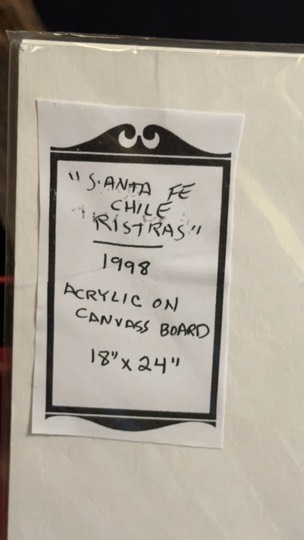 "SANTA FE
CHILE
RISTRAS"
1998
ACRYLIC ON
CANVASS BOARD
18" x 24"